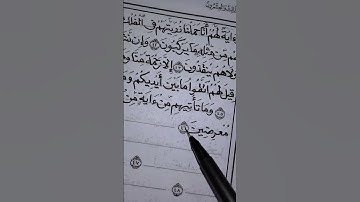 ءَايَةٌ لَّهُمْ أَنَّا حَمَلْنَا ذُرِّيَّتَهُمْ فِى ٱلْفُلْكِ
مِّن مِّثْلِهِۦ مَا يَرْكَبُونَ ٤٢ وَإِن نَّشَأْ
وَلَا هُمْ يُنقَذُونَ ٤٣ إِلَّا رَحْمَةً مِّنَّا وَ
قِيلَ لَهُمُ ٱتَّقُوا۟ مَا بَيْنَ أَيْدِيكُمْ وَمَ
٤٥ وَمَا تَأْتِيهِم مِّنْ ءَايَةٍ مِّنْ
مُعْرِضِينَ
٤٧
٤٨